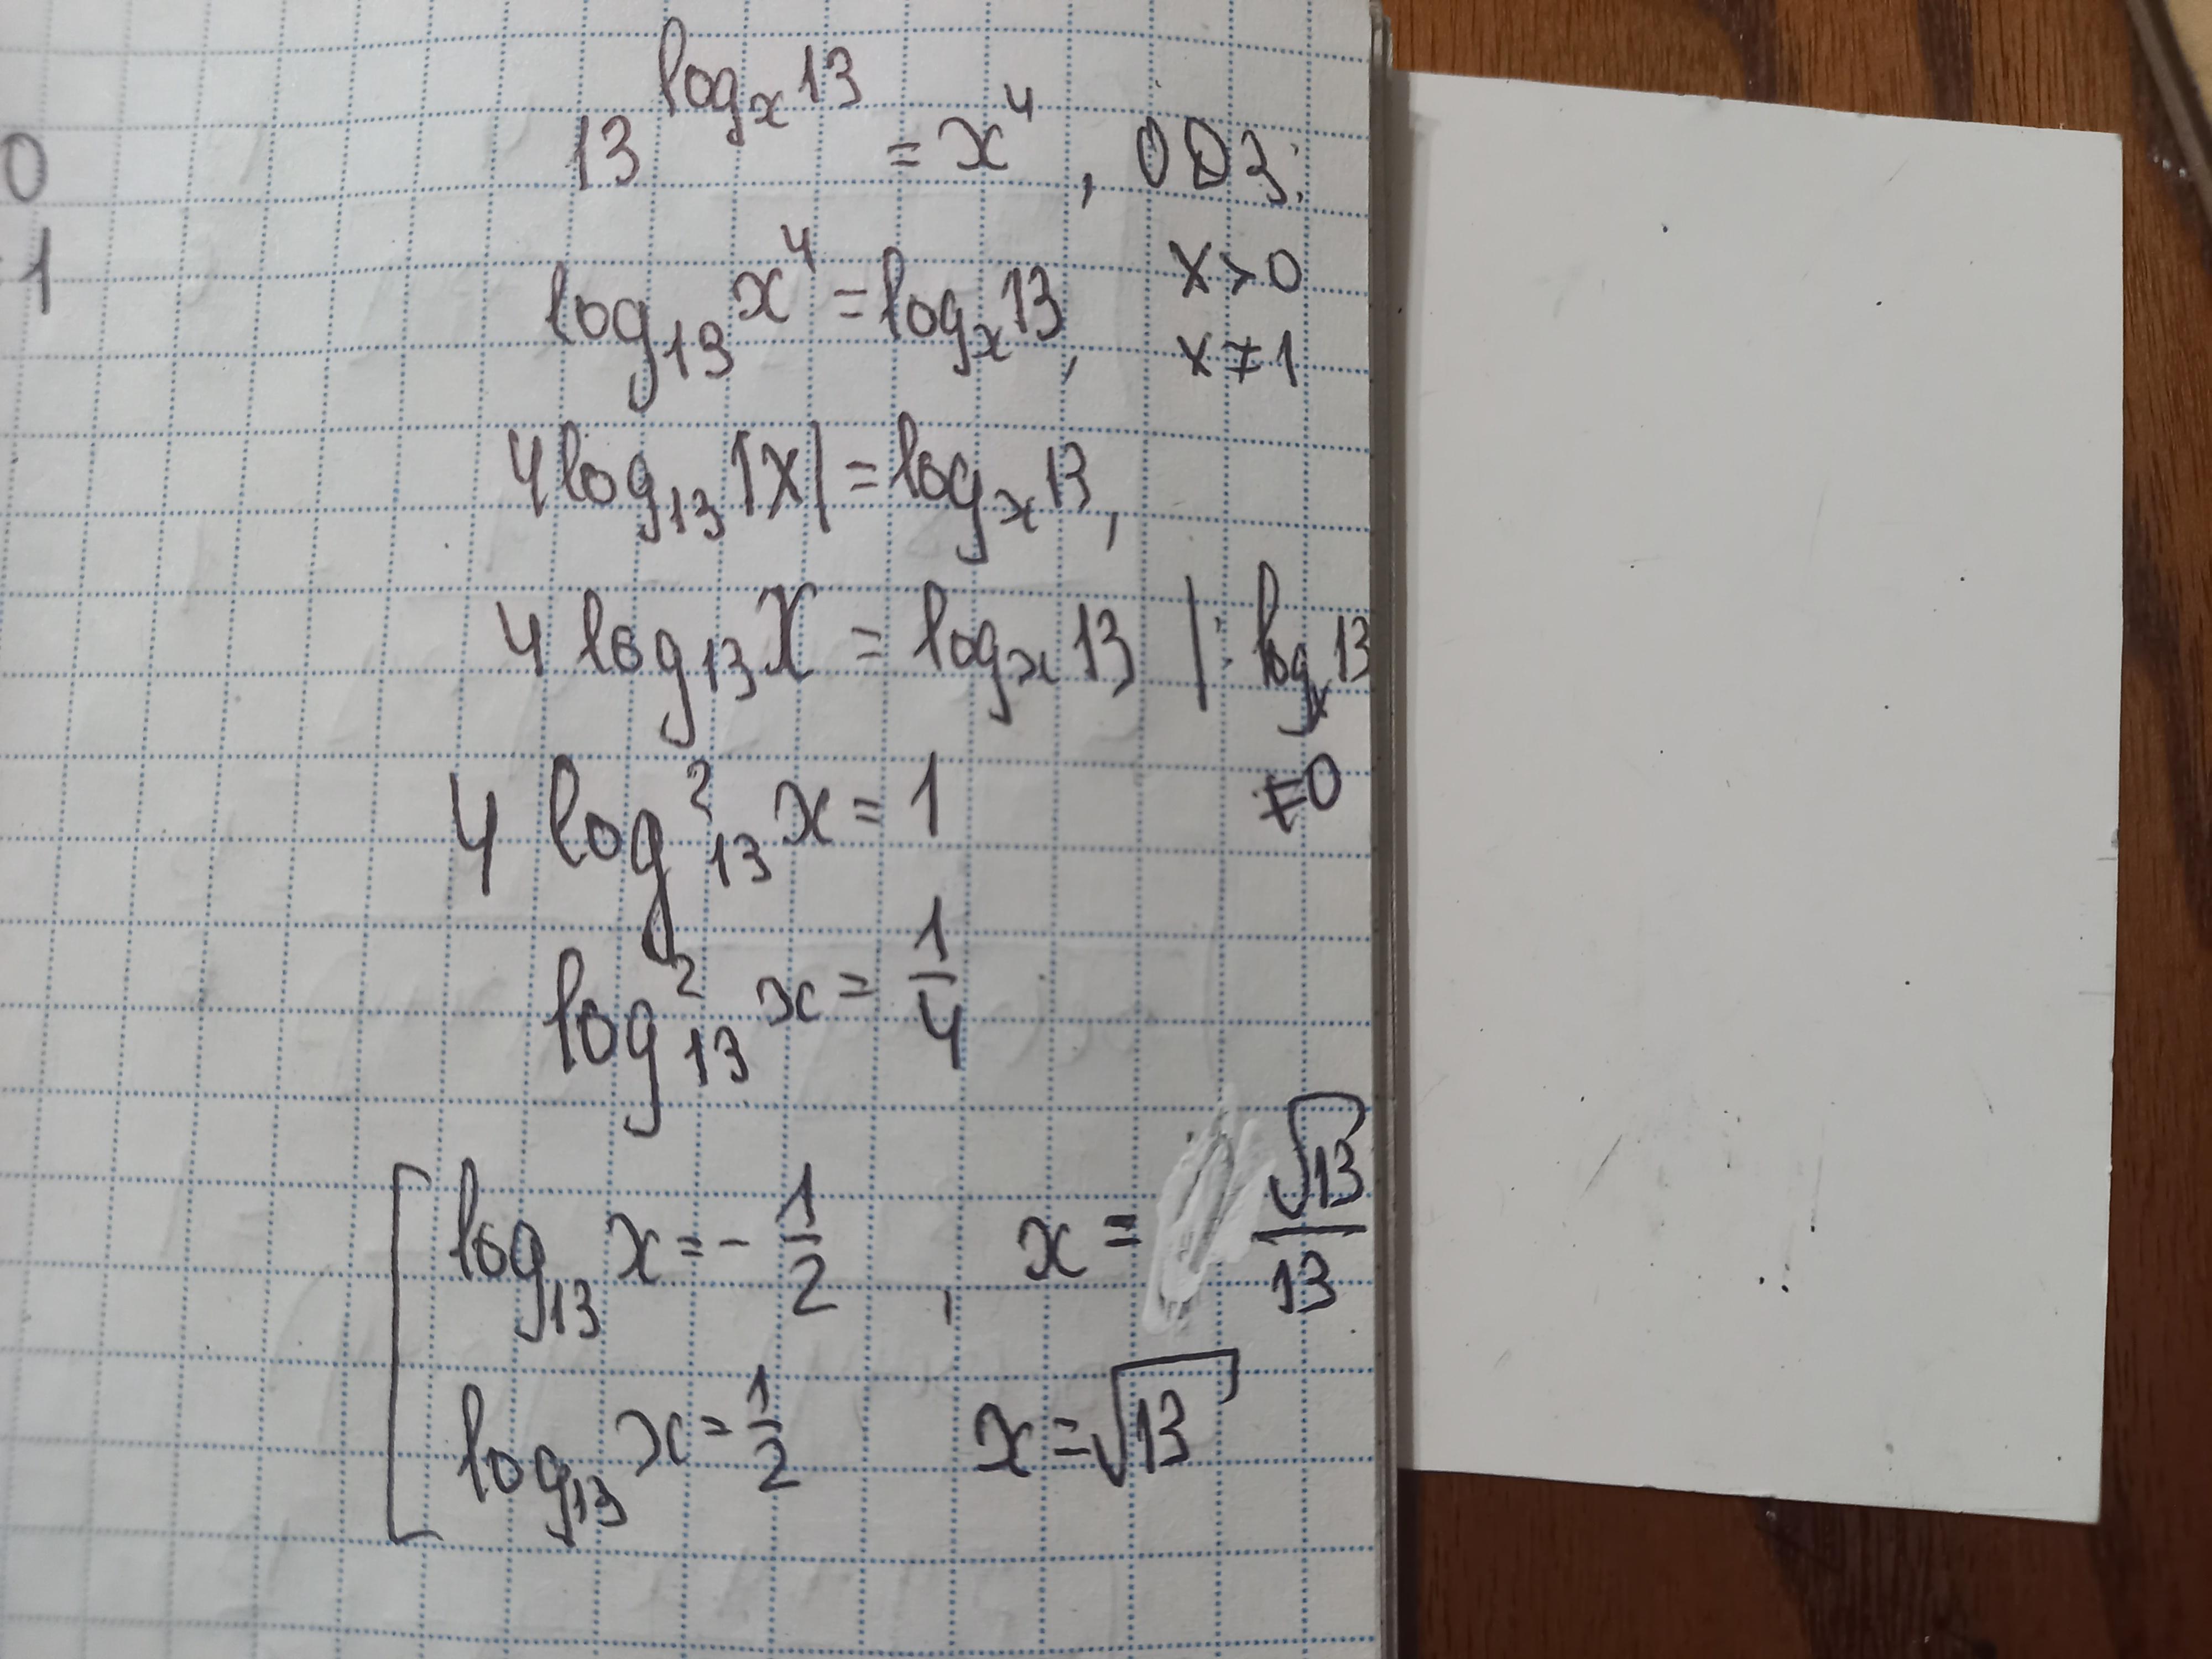 0
1
13^{log_x 13} = x^4, ОДЗ:
log_{13} x^4 = log_x 13, x > 0
x ≠ 1
4 log_{13} |x| = log_x 13,
4 log_{13} x = log_x 13 | : log_x 13
≠ 0
4 log^2_{13} x = 1
log^2_{13} x = \frac{1}{4}
[ log_{13} x = - \frac{1}{2} , x = \frac{\sqrt{13}}{13}
log_{13} x = \frac{1}{2} x = \sqrt{13}